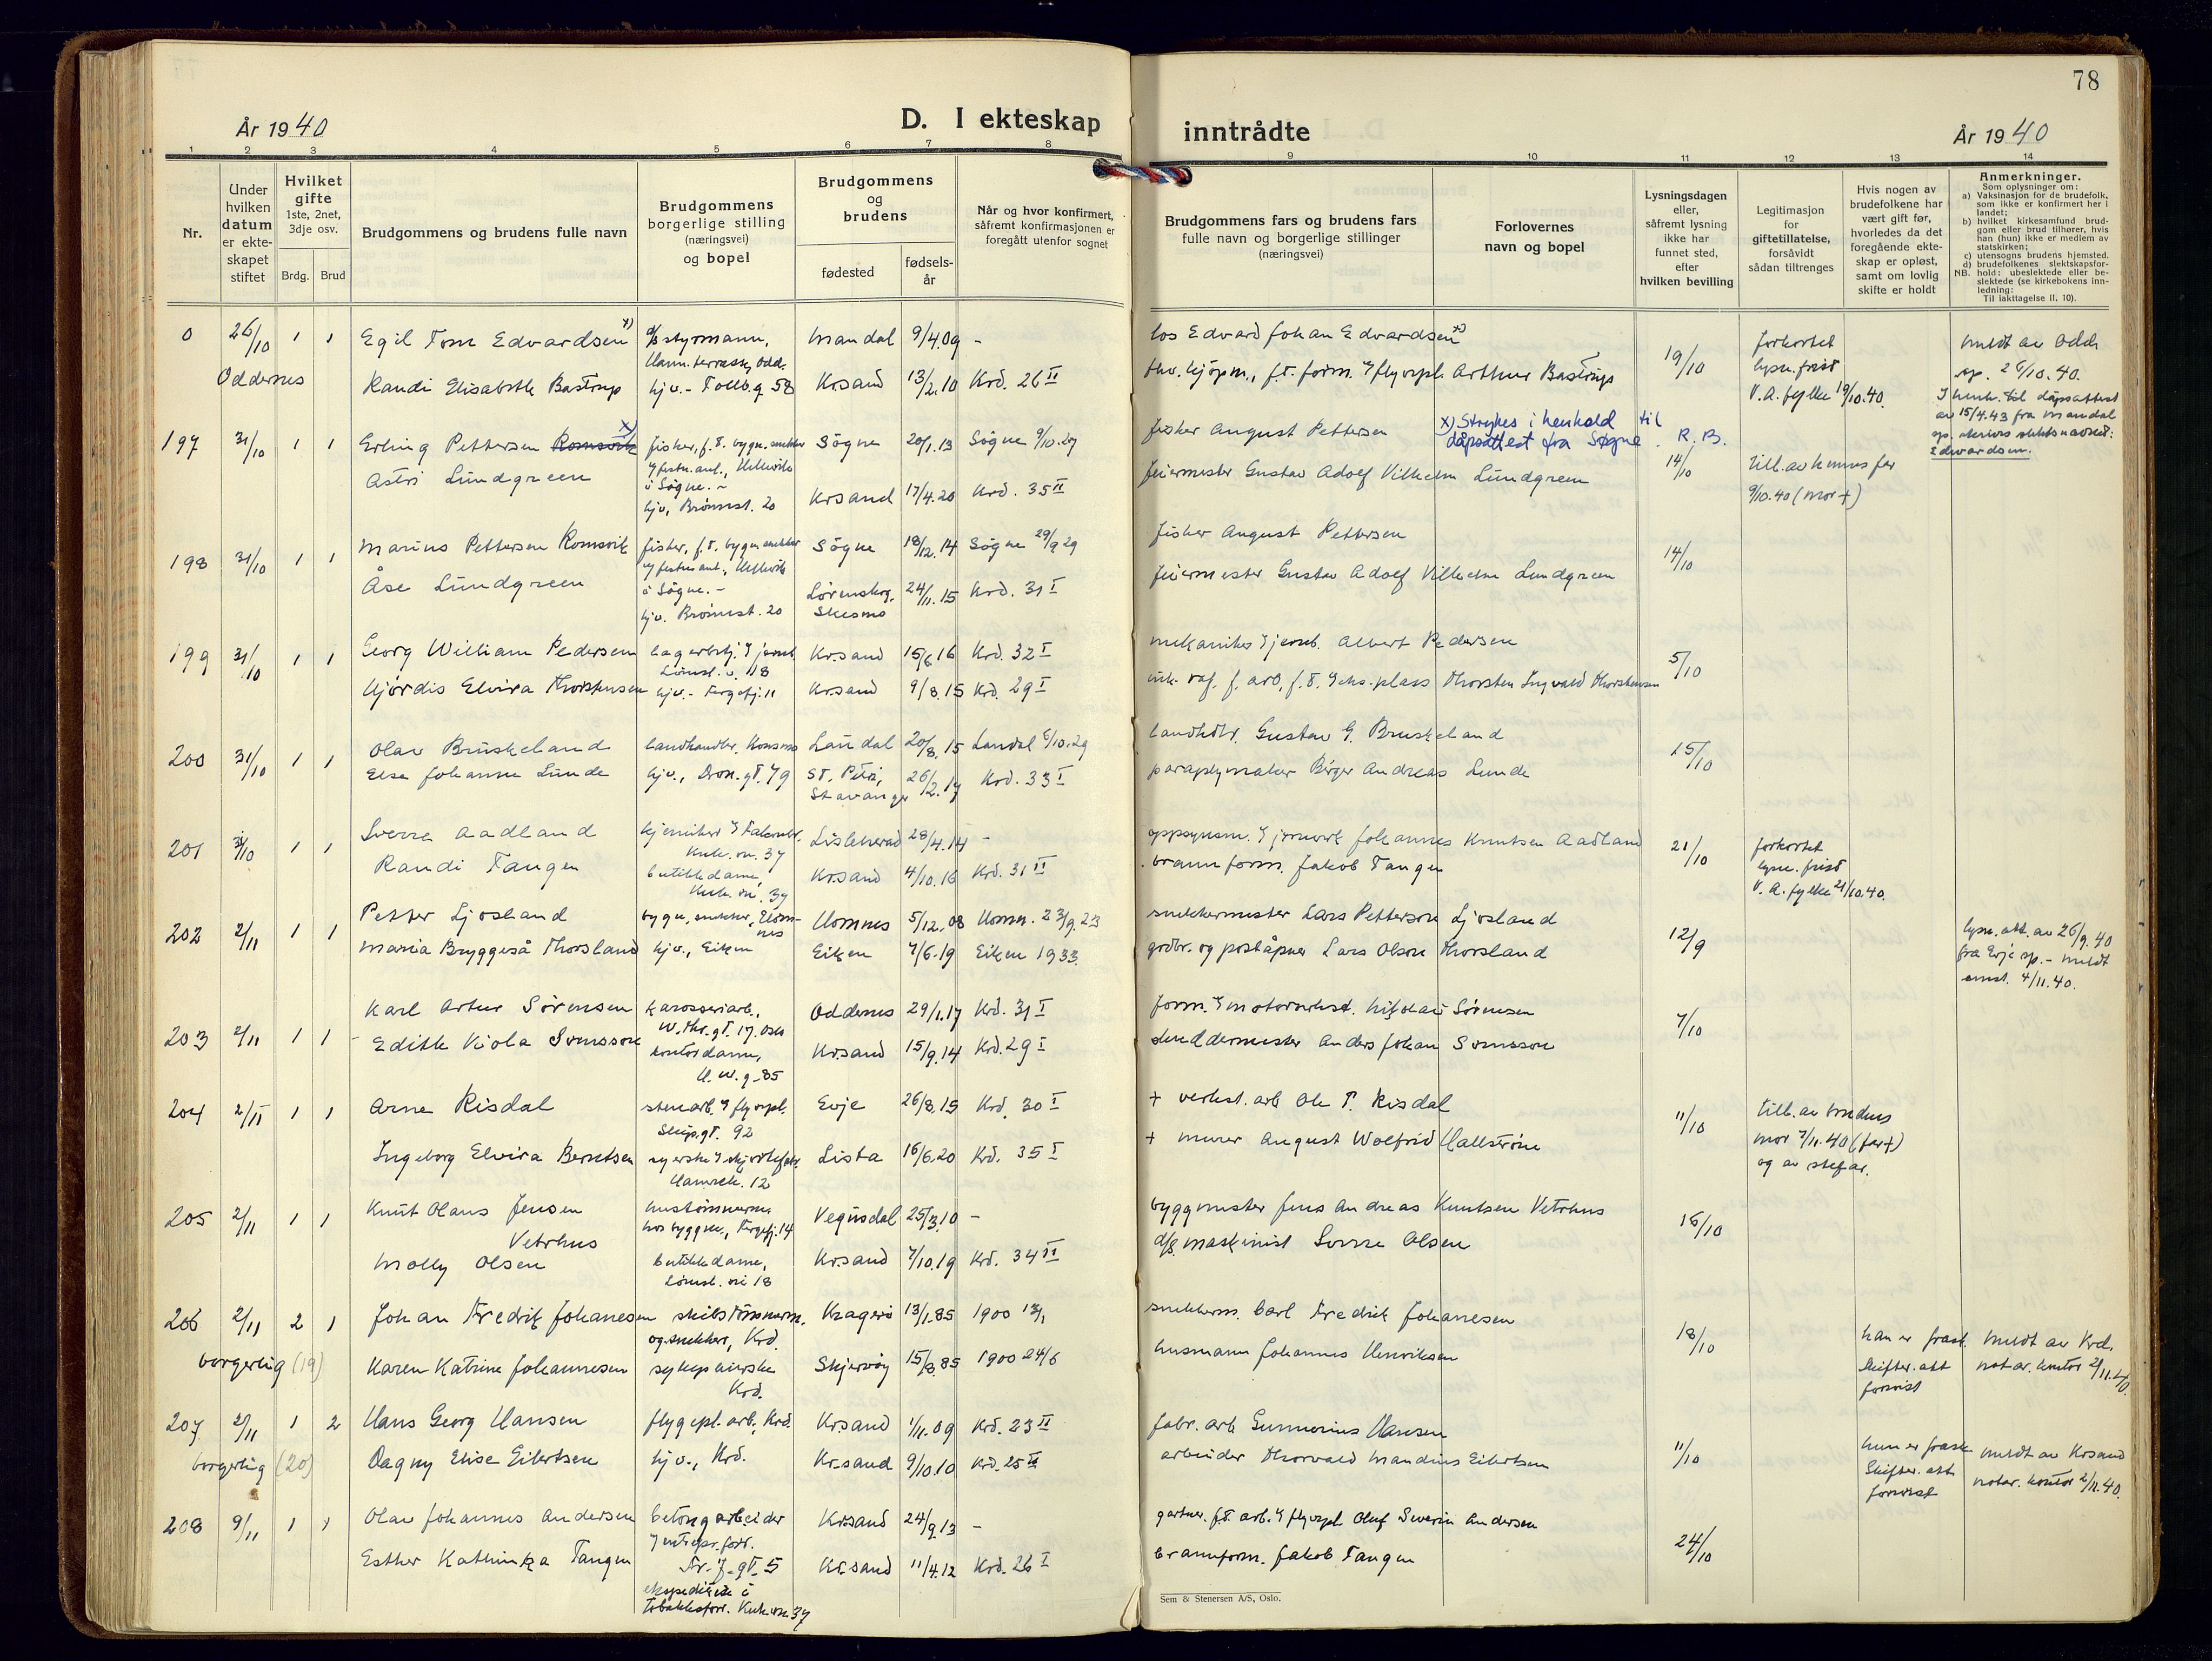 78
År 1940
D. I ekteskap
inntrådte
År 1940
1
2
3
4
5
6
7
8
9
10
11
12
13
14
Nr.
Under
hvilken
datum
er ekte-
skapet
stiftet
Hvilket
gifte
1ste, 2net,
3dje osv.
Brdg.
Brud
Brudgommens og brudens fulle navn
Brudgommens
borgerlige stilling
(næringsvei)
og bopel
Brudgommens
og
brudens
fødested
fødsels-
år
Når og hvor konfirmert,
såfremt konfirmasjonen er
foregått utenfor sognet
Brudgommens fars og brudens fars
fulle navn og borgerlige stillinger
(næringsvei)
Forlovernes
navn og bopel
Lysningsdagen
eller,
såfremt lysning
ikke har
funnet sted,
efter
hvilken bevilling
Legitimasjon
for
giftetillatelse,
forsåvidt
sådan tiltrenges
Hvis nogen av
brudefolkene har
vært gift før,
hvorledes da det
foregående ekte-
skap er opløst,
samt om lovlig
skifte er holdt
Anmerkninger.
Som oplysninger om:
a) Vaksinasjon for de brudefolk,
som ikke er konfirmert her i
landet;
b) hvilket kirkesamfund brud-
gom eller brud tilhører, hvis
han (hun) ikke er medlem av
statskirken;
c) utensogns brudens hjemsted.
d) brudefolkenes slektskapsfor-
NB. hold: ubeslektede eller be-
slektede (se kirkebokens inn-
ledning:
Til iakttagelse II. 10).
0 26/10 1 1 Egil Tom Edvardsen x) styrmann, Mandal 9/4.09 -
Oddernes Randi Elisabeth Bastrup hjv. - Tollb.g. 58 Krsand 13/2.10 Krd. 26 II
los Edvard Johan Edvardsen x)
Arthur Bastrup
19/10
forkortet
lysn. frist
V. A. fylke 19/10.40.
meldt av Odd.
sp. 26/10.40.
I henh. til dåpsattest
av 15/4.43 fra Mandal
Edvardsen.
197 31/10 1 1 Erling Pettersen Romsvik x) fisker, f.t. bygn.snekker Søgne 20/1.13 Søgne 9/10.27
i Søgne. -
Astri Lundgreen hjv., Brønnst. 20 Krsand 17/4.20 Krd. 35 II
fisker August Pettersen
x) Strykes i henhold til
dåpsattest fra Søgne. R. B.
feiermester Gustav Adolf Vilhelm Lundgreen
14/10
till. av hennes far
9/10.40 (mor +)
198 31/10 1 1 Marius Pettersen Romsvik fisker, f.t. bygn.snekker Søgne 18/12.14 Søgne 29/9 29
i Søgne. -
Åse Lundgreen hjv. Brønnst. 20 Lørenskog, Skesmo 24/11.15 Krd. 31 I
fisker August Pettersen
feiermester Gustav Adolf Vilhelm Lundgreen
14/10
199 31/10 1 1 Georg William Pedersen Krsand 15/6 16 Krd. 32 I
Hjørdis Elvira Thorstensen hjv. - Krsand 9/8.15 Krd. 29 I
Albert Pedersen
Thorsten Ingvald Thorstensen
5/10
200 31/10 1 1 Olav Bruskeland landhandler, Konsmo Laudal 20/8.15 Laudal 6/10.29
Else Johanne Lunde hjv., Dron.gt. 79 St. Petri, Stavanger 26/2.17 Krd. 33 I
landhdlr. Gustav G. Bruskeland
paraplymaker Birger Andreas Lunde
15/10
201 31/10 1 1 Sverre Aadland 28/4.14 -
Randi Tangen butikkdame, Krsand 4/10.16 Krd. 31 II
Johannes Knutsen Aadland
brannform. Jakob Tangen
21/10
forkortet
lysn. frist
V. A. fylke 21/10.40.
202 2/11 1 1 Petter Ljosland bygn.snekker, Hornnes 5/12.08 Hornn. 23/9.23
Maria Bryggeså Thorsland hjv., Eiken Eiken 7/6.19 Eiken 1933.
snekkermester Lars Petterson Ljosland
grdbr. og poståpner Lars Olson Thorsland
12/9
lysn.att. av 26/9.40
fra Evje sp. - meldt
4/11.40.
203 2/11 1 1 Karl Artur Sørensen karosseriarb., Oddernes 29/1.17 Krd. 31 I
Edith Viola Svensson kontordame, Krsand 15/9.14 Krd. 29 I
H. W. g. 85
Nikolai Sørensen
skreddermester Anders Johan Svensson
7/10
204 2/11 1 1 Arne Risdal Evje 26/8.15 Krd. 30 I
Skip.gt. 92
Ingeborg Elvira Berntsen Lista 16/6.20 Krd. 35 I
+ verkst.arb Ole T. Risdal
+ murer August Wolfrid Hallström
11/10
till. av brudens
mor 7/11.40 (far +)
og av stefar.
205 2/11 1 1 Knut Olaus Jensen Vetrhus hustømmerm. Vegusdal 25/3.10 -
Molly Olsen butikkdame, Krsand 7/10.19 Krd. 34 II
byggmester Jens Andreas Knutsen Vetrhus
d/s maskinist Sverre Olsen
16/10
206 2/11 2 1 Johan Fredrik Johanesen skibstømmerm. og snekker, Krd. Kragerø 13/1.85 1900
borgerlig (19) Karen Katrine Johannesen sykepleierske Krd. Skjervøy 15/8.85 1900 24/6
snekkerm. Carl Fredrik Johanesen
husmann Johannes Henriksen
18/10
han er frask.
Skifter. att
forevist
meldt av Krd.
notar. kontor 2/11.40.
207 2/11 1 2 Hans Georg Hansen flygepl. arb, Krd. Krsand 1/11.09 Krd. 23 II
borgerlig (20) Dagny Elise Eilertsen hjv., Krd. Krsand 9/10.10 Krd. 25 II
fabr. arb Gunnerius Hansen
arbeider Thorvald Mandius Eilertsen
11/10
hun er frask
Skifter. att
forevist
meldt av Krsand
notar. kontor 2/11.40.
208 9/11 1 1 Olav Johannes Andersen betongarbeider Krsand 24/9.13 -
Esther Kathinka Tangen Krsand 11/4.12 Krd. 26 I
ekspeditrise i
tobakksforr.
gartner. f.t. arb. Oluf Severin Andersen
brannform. Jakob Tangen
24/10
Sem & Stenersen A/S, Oslo.